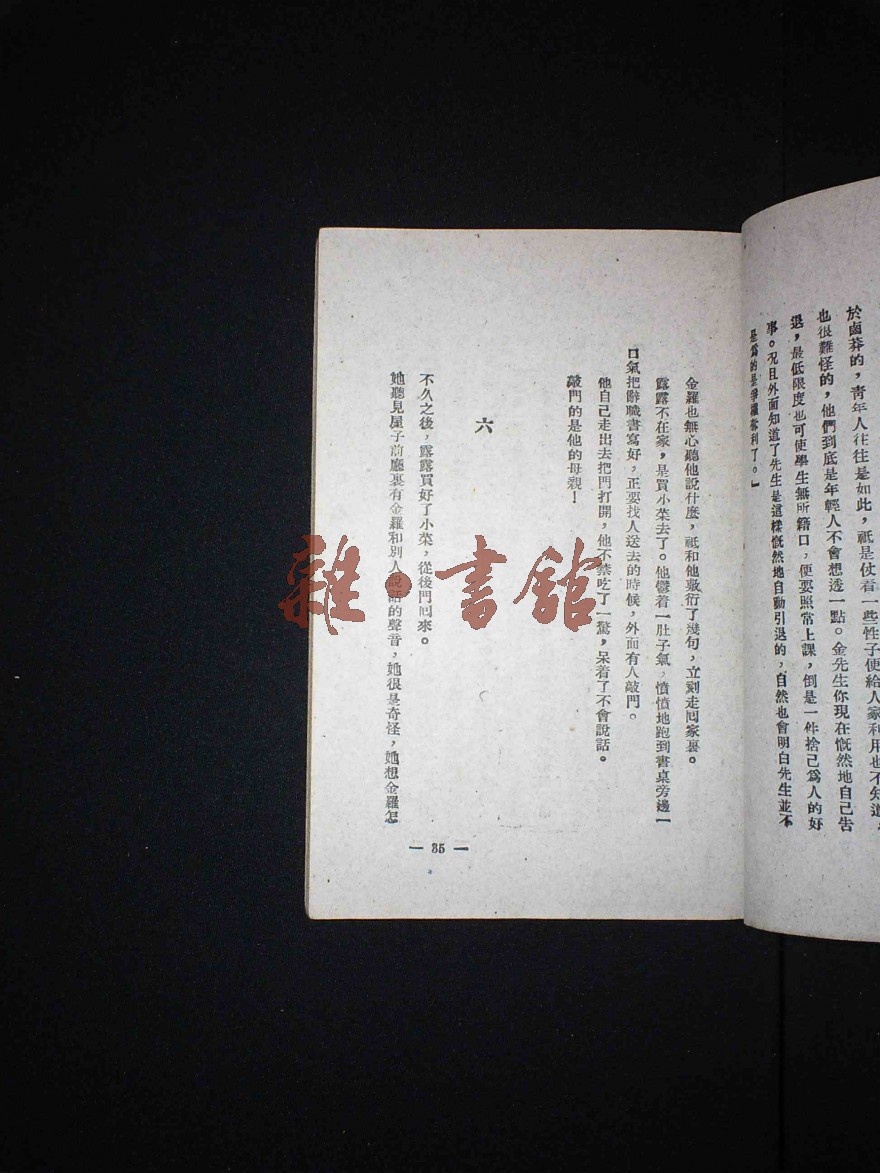 於鹵莽的，青年人往往是如此，祇是仗着一些性子便給人家利用也不知道，
也很難怪的，他們到底是年輕人不會想透一點。金先生你現在慨然地自己告
退，最低限度也可使學生無所籍口，便要照常上課，倒是一件捨己爲人的好
事。况且外面知道了先生是這樣慨然地自動引退的，自然也會明白先生並不
是爲的是爭權奪利了。』
金羅也無心聽他說什麼，祇和他敷衍了幾句，立刻走囘家裏。
露露不在家，是買小菜去了。他鬱着一肚子氣，憤憤地跑到書桌旁邊一
口氣把辭職書寫好，正要找人送去的時候，外面有人敲門。
他自己走出去把門打開，他不禁吃了一驚，呆着了不會說話。
敲門的是他的母親！
六
不久之後，露露買好了小菜，從後門囘來。
她聽見屋子前廳裏有金羅和別人說話的聲音，她很是奇怪，她想金羅怎
— 35 —
雜·書館